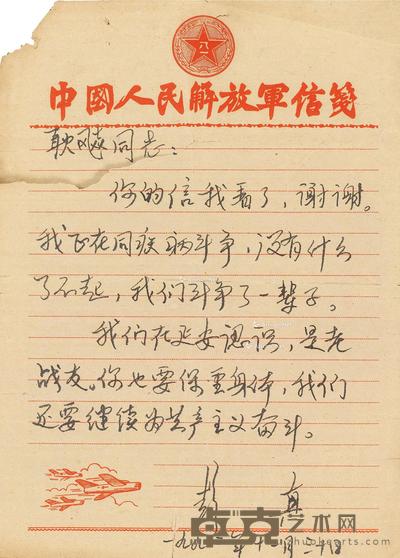 八一
中國人民解放軍信箋
耿飚同志：
你的信我看了，谢谢。
我正在同疾病斗争，没有什么
了不起，我们斗争了一辈子。
我们在延安认识，是老
战友。你也要保重身体，我们
还要继续为共产主义奋斗。
彭真
卓克艺术网
一九九 年十二月二十日